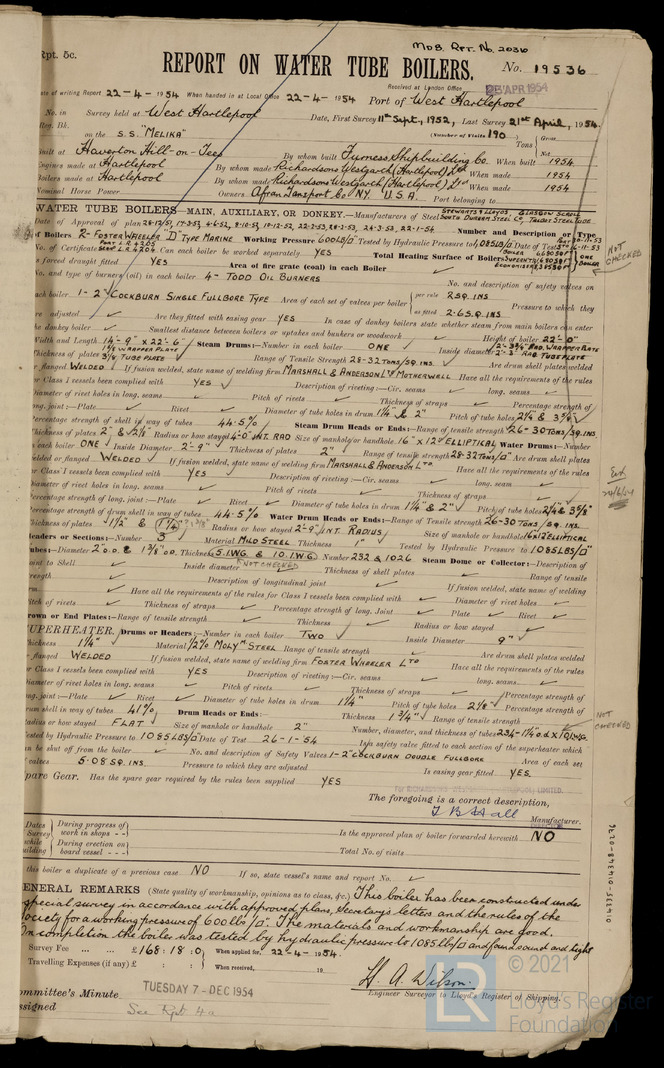 Rpt. 5c.
Mdb. Rpt. No. 2036
REPORT ON WATER TUBE BOILERS.
No. 19536
Received at London Office
APR 1954
ate of writing Report 22-4-1954 When handed in at Local Office 22-4-1954 Port of West Hartlepool
No. in Survey held at West Hartlepool Date, First Survey 11th Sept, 1952, Last Survey 21st April, 1954.
eg. Bk. (Number of Visits 190)
on the S.S. "MELIKA" Tons Gross Net
uilt at Haverton Hill-on-Tees By whom built Furness Shipbuilding Co. When built 1954
ngines made at Hartlepool By whom made Richardsons Westgarth (Hartlepool) Ltd When made 1954
oilers made at Hartlepool By whom made Richardsons Westgarth (Hartlepool) Ltd When made 1954
Nominal Horse Power Owners Afran Transport Co NY. U.S.A. Port belonging to
WATER TUBE BOILERS—MAIN, AUXILIARY, OR DONKEY.—Manufacturers of Steel STEWARTS & LLOYDS. SOUTH DURHAM STEEL CO, TALBOT STEEL TUBE
Date of Approval of plan Number and Description or Type
of Boilers 2-FOSTER WHEELER "D" TYPE MARINE Working Pressure 600 LB/□" Tested by Hydraulic Pressure to 1085 LB/□" Date of Test
No. of Certificate Can each boiler be worked separately YES Total Heating Surface of Boilers ONE BOILER
NOT CHECKED
s forced draught fitted YES Area of fire grate (coal) in each Boiler
No. and type of burners (oil) in each boiler 4- TODD OIL BURNERS No. and description of safety valves on
ach boiler 1-2" COCKBURN SINGLE FULLBORE TYPE Area of each set of valves per boiler per rule 2 SQ. INS as fitted 2.6 SQ. INS Pressure to which they
re adjusted Are they fitted with easing gear YES In case of donkey boilers state whether steam from main boilers can enter
he donkey boiler Smallest distance between boilers or uptakes and bunkers or woodwork Height of boiler 22'-0"
Width and Length 14'-9" x 22'-6" Steam Drums:—Number in each boiler ONE Inside diameter
Thickness of plates 3 1/8 TUBE PLATE Range of Tensile Strength 28-32 TONS/SQ. INS Are drum shell plates welded
r flanged WELDED If fusion welded, state name of welding firm MARSHALL & ANDERSON LTD MOTHERWELL Have all the requirements of the rules
or Class I vessels been complied with YES Description of riveting:—Cir. seams long. seams
Diameter of rivet holes in long. seams Pitch of rivets Thickness of straps Percentage strength of
ong. joint:—Plate Rivet Diameter of tube holes in drum 1 1/4" & 2" Pitch of tube holes 2 1/4 & 3 3/8
Percentage strength of shell in way of tubes 44.5% Steam Drum Heads or Ends:—Range of Tensile strength 26-30 TONS/SQ. INS
hickness of plates 2" & 2 1/8" Radius or how stayed 4'-0" INT. RAD Size of manhole or handhole 16" x 12" ELLIPTICAL Water Drums:—Number
n each boiler ONE Inside Diameter 2'-9" Thickness of plates 2" Range of tensile strength 28-32 TONS/□" Are drum shell plates
elded or flanged WELDED If fusion welded, state name of welding firm MARSHALL & ANDERSON LTD Have all the requirements of the rules
or Class I vessels been complied with YES Description of riveting:—Cir. seams long. seam
Diameter of rivet holes in long. seams Pitch of rivets Thickness of straps
ercentage strength of long. joint:—Plate Rivet Diameter of tube holes in drum 1 1/4" & 2" Pitch of tube holes 2 1/4 & 3 3/8"
ercentage strength of drum shell in way of tubes 44.5% Water Drum Heads or Ends:—Range of Tensile strength 26-30 TONS/SQ. INS
hickness of plates 1 1/2" & 1 1/4" Radius or how stayed 2'-9" INT. RADIUS Size of manhole or handhole 16" x 12" ELLIPTICAL
eaders or Sections:—Number 3 Material MILD STEEL Thickness 1" Tested by Hydraulic Pressure to 1085 LBS/□"
ubes:—Diameter 2" O.D. & 1 3/8" O.D. Thickness 5.I.W.G & 10.I.W.G. Number 232 & 1026 Steam Dome or Collector:—Description of
NOT CHECKED
oint to Shell Inside diameter Thickness of shell plates Range of tensile
rength Description of longitudinal joint If fusion welded, state name of welding
rm Have all the requirements of the rules for Class I vessels been complied with Diameter of rivet holes
itch of rivets Thickness of straps Percentage strength of long. Joint Plate Rivet
rown or End Plates:—Range of tensile strength Thickness Radius or how stayed
UPERHEATER. Drums or Headers:—Number in each boiler TWO Inside Diameter 9"
hickness 1 1/4" Material 1/2% MOLYM STEEL Range of tensile strength Are drum shell plates welded
flanged WELDED If fusion welded, state name of welding firm FOSTER WHEELER LTD Have all the requirements of the rules
or Class I vessels been complied with YES Description of riveting:—Cir. seams long. seams
iameter of rivet holes in long. seams Pitch of rivets Thickness of straps Percentage strength of
ng. joint:—Plate Rivet Diameter of tube holes in drum 1 1/4" Pitch of tube holes 2 1/8" Percentage strength of
rum shell in way of tubes 41% Drum Heads or Ends:— Thickness 1 3/4" Range of tensile strength
adius or how stayed FLAT Size of manhole or handhole 2" Number, diameter, and thickness of tubes
NOT CHECKED
ested by Hydraulic Pressure to 1085 LBS/□" Date of Test 26-1-54 Is a safety valve fitted to each section of the superheater which
an be shut off from the boiler No. and description of Safety Valves 1-2" COCKBURN DOUBLE FULLBORE Area of each set
valves 5.08 SQ. INS Pressure to which they are adjusted Is easing gear fitted YES.
pare Gear. Has the spare gear required by the rules been supplied YES
The foregoing is a correct description,
Manufacturer.
Dates Survey while uilding During progress of work in shops - - Is the approved plan of boiler forwarded herewith NO
During erection on board vessel - - - Total No. of visits
this boiler a duplicate of a previous case NO If so, state vessel's name and report No.
ENERAL REMARKS (State quality of workmanship, opinions as to class, &c.) This boiler has been constructed under
special survey in accordance with approved plans, Secretary's letters and the rules of the
Society for a working pressure of 600 lbs/□". The materials and workmanship are good.
On completion the boiler was tested by hydraulic pressure to 1085 lb/□" and found sound and tight
Survey Fee ... ... £168:18:0 When applied for, 22-4-1954.
Travelling Expenses (if any) £ : : When received, 19
H. A. Wilson.
Engineer Surveyor to Lloyd's Register of Shipping.
ommittee's Minute TUESDAY 7-DEC 1954
ssigned See Rpt 4a
014335-014348-0276
LR
© 2021
Lloyd's Register
Foundation